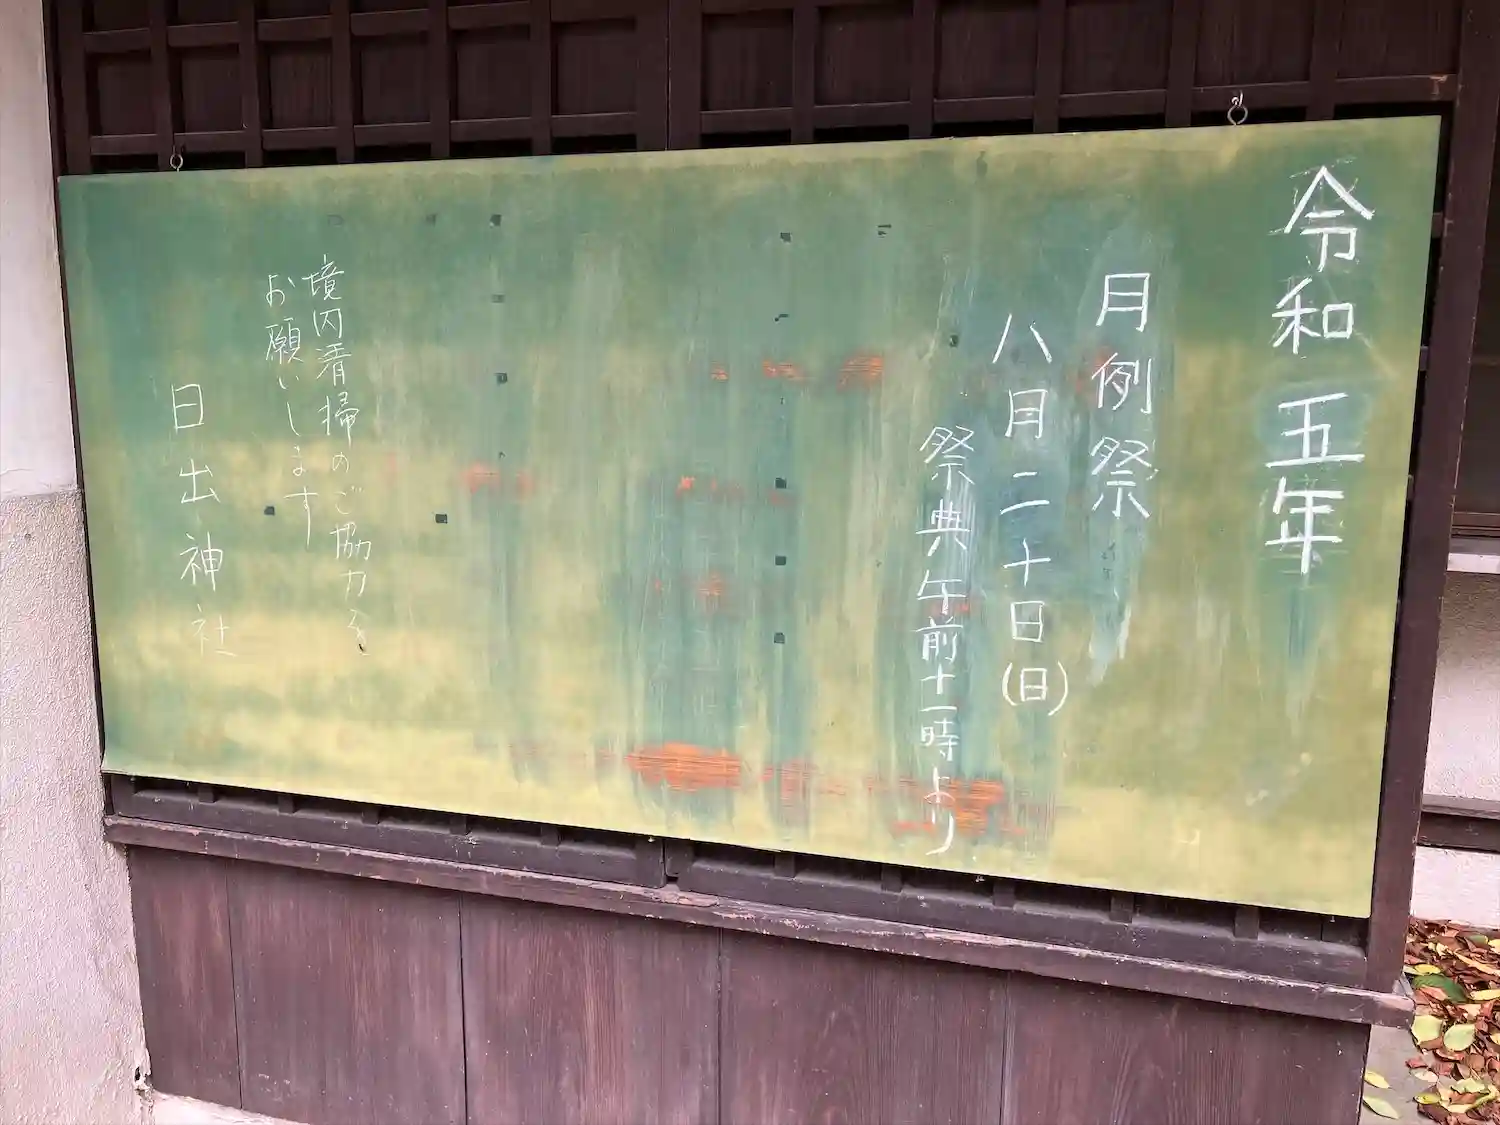 令和五年
月例祭
八月二十日(日)
祭典午前十一時より
境内清掃のご協力を
お願いします
日出神社